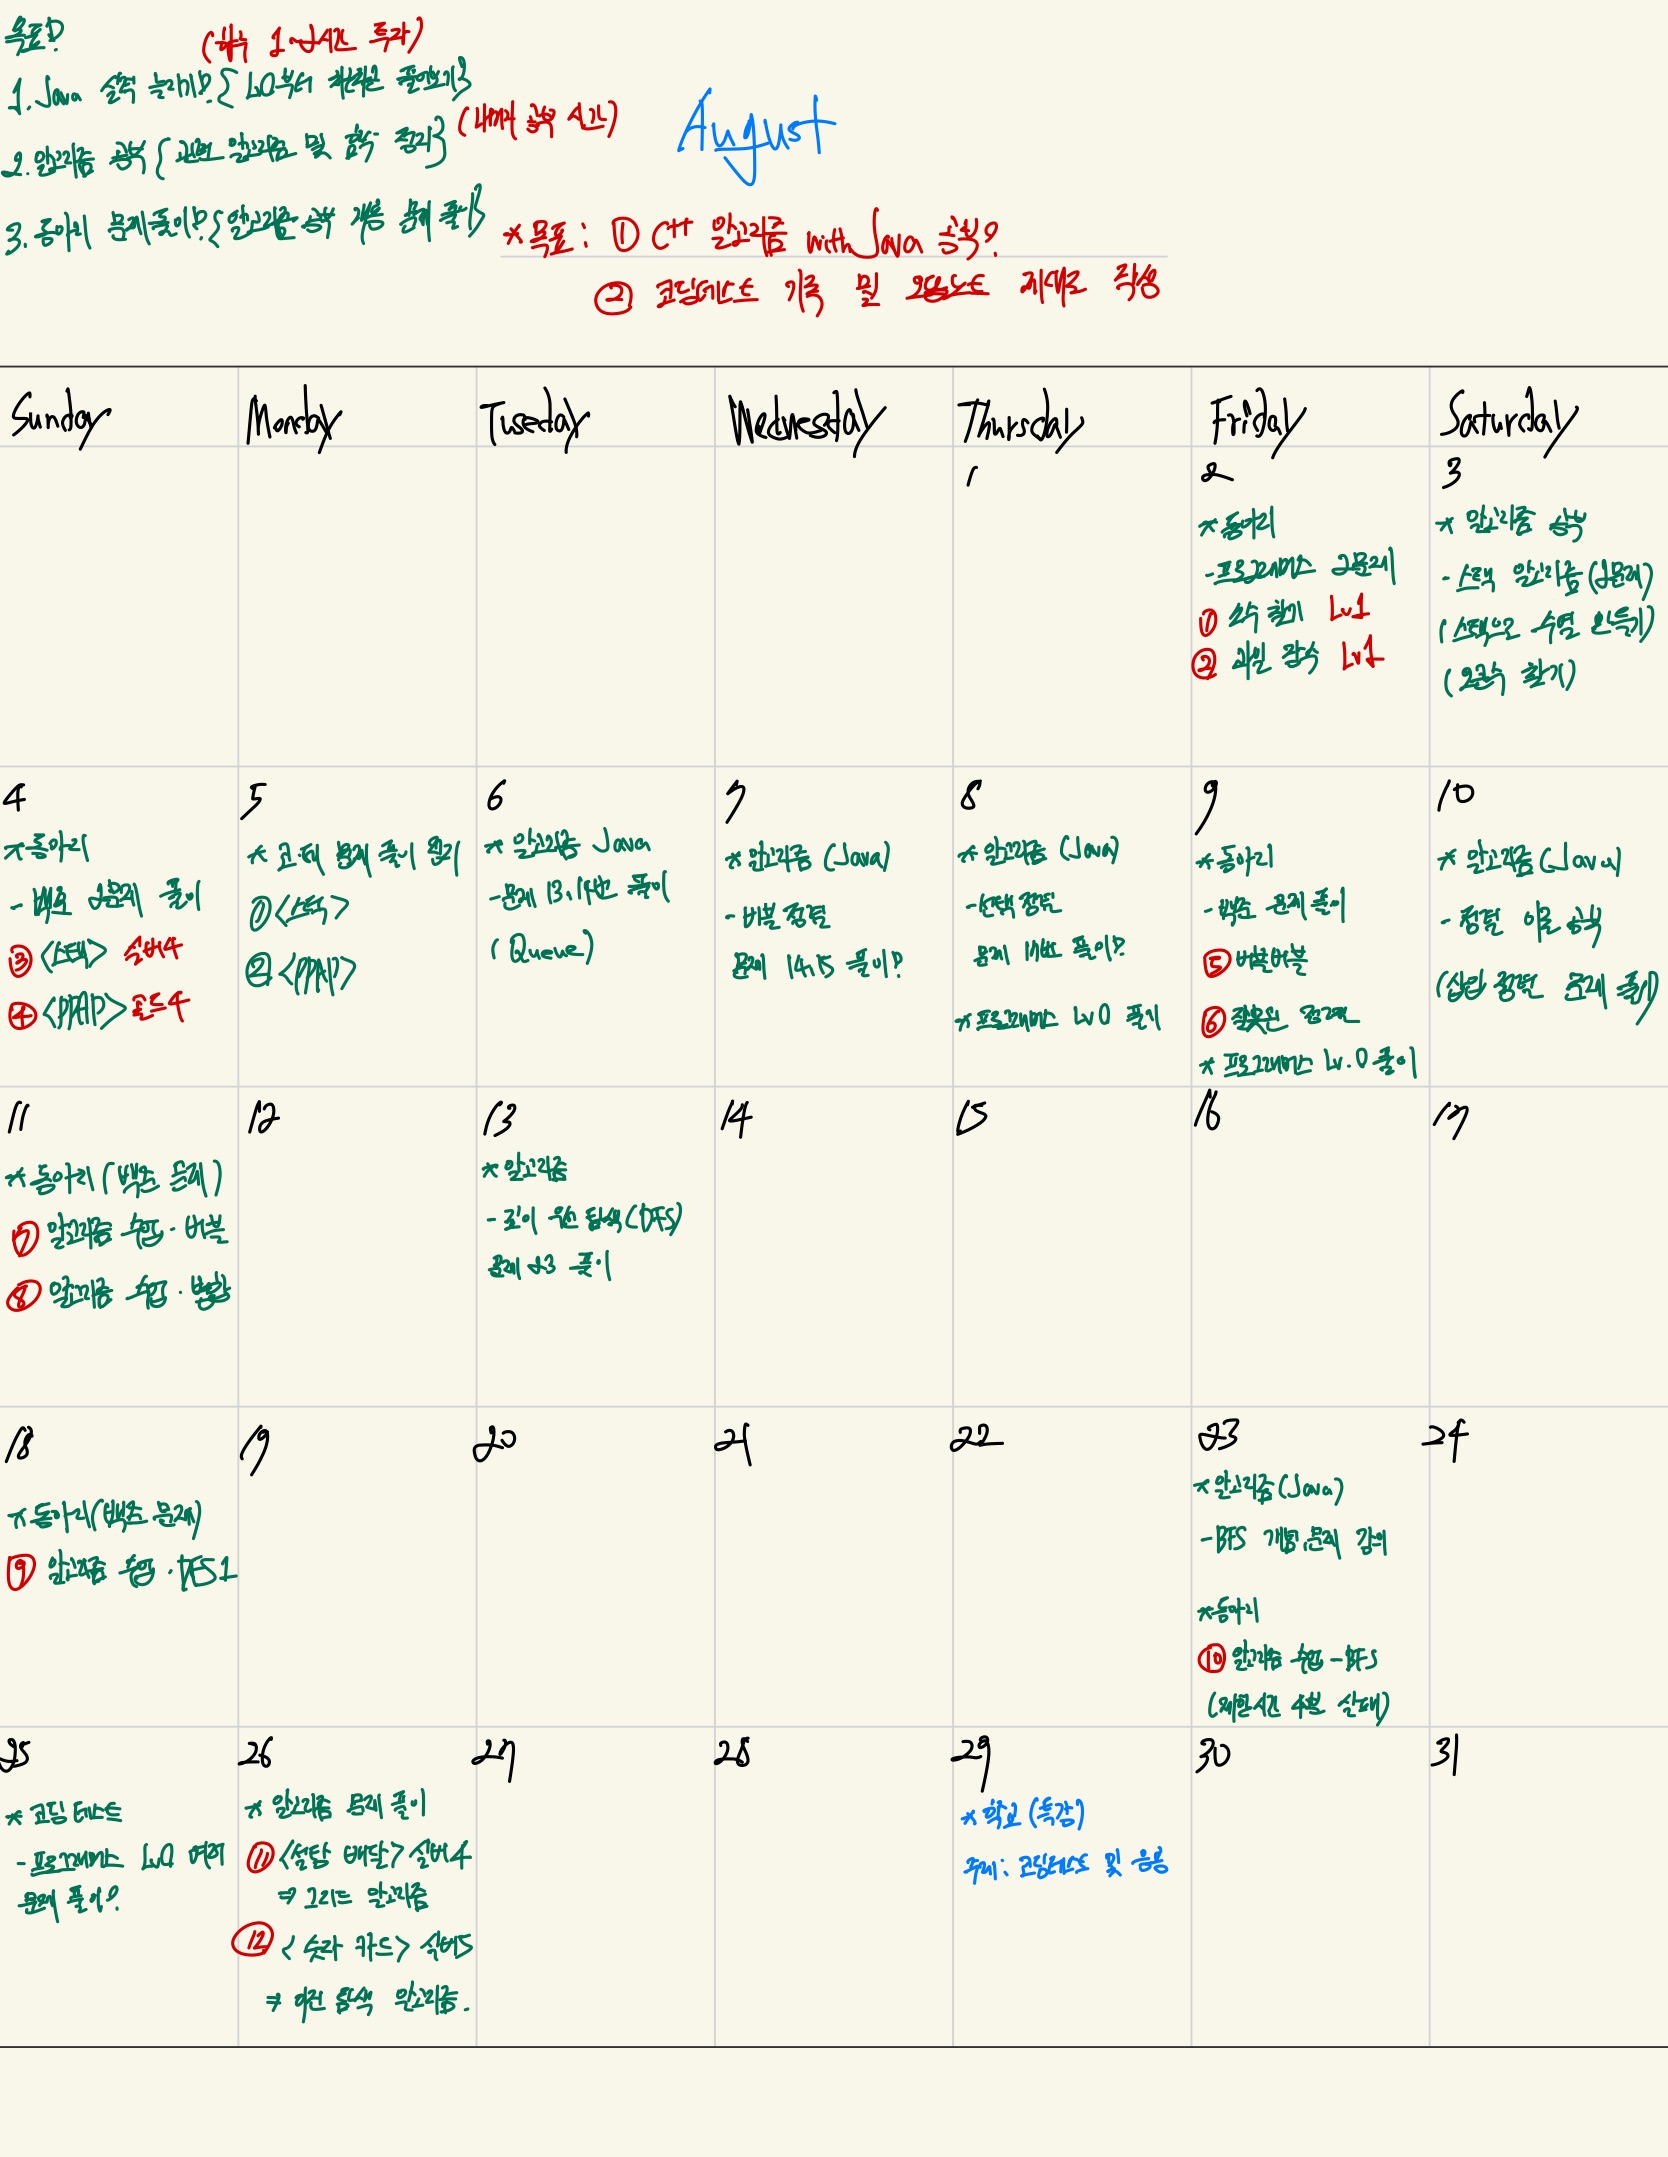 목표!
(하루 1~2시간 투자)
1. Java 실력 늘리기!? { Lv.0부터 차근차근 풀어보기}
2. 알고리즘 공부 { 관련 알고리즘 및 함수 정리}
(나머지 공부 시간)
3. 동아리 문제풀이!? {알고리즘 공부 겸용 문제 풀기}
August
* 목표 : ① C++ 알고리즘 with Java 공부?
② 코딩테스트 기록 및 오답노트 제대로 작성
Sunday Monday Tuseday Wednesday Thursday Friday Saturday
1
2
* 동아리
- 프로그래머스 2문제
① 소수 찾기 Lv1
② 과일 장수 Lv1
3
* 알고리즘 공부
- 스택 알고리즘 (2문제)
(스택으로 수열 만들기)
(오큰수 찾기)
4
* 동아리
- 백준 2문제 풀이
③ <스택> 실버4
④ <PPAP> 골드4
5
* 코.테 문제 풀이 원리
① <스택>
② <PPAP>
6
* 알고리즘 Java
- 문제 13, 14번 풀이
(Queue)
7
* 알고리즘 (Java)
- 버블 정렬
문제 14, 15 풀이?
8
* 알고리즘 (Java)
- 선택 정렬
문제 17번 풀이?
* 프로그래머스 Lv 0 풀기
9
* 동아리
- 백준 문제 풀이
⑤ 버블버블
⑥ 잘못된 정렬
* 프로그래머스 Lv.0 풀이
10
* 알고리즘 (Java)
- 정렬 이론 공부
(삽입 정렬 문제 풀이)
11
* 동아리 (백준 문제)
⑦ 알고리즘 수업 · 버블
⑧ 알고리즘 수업 · 병합
12
13
* 알고리즘
- 깊이 우선 탐색 (DFS)
문제 23 풀이
14
15
16
17
18
* 동아리 (백준 문제)
⑨ 알고리즘 수업 · DFS 1
19
20
21
22
23
* 알고리즘 (Java)
- BFS 개념, 문제 강의
* 동아리
⑩ 알고리즘 수업 - BFS
(제한시간 실패)
24
25
* 코딩 테스트
- 프로그래머스 Lv.0 여러
문제 풀이?
26
* 알고리즘 문제 풀이
⑪ <설탕 배달> 실버4
⇒ 그리드 알고리즘
⑫ <숫자 카드> 실버5
⇒ 이진 탐색 알고리즘.
27
28
29
* 학교 (특강)
주제 : 코딩테스트 및 응용
30
31